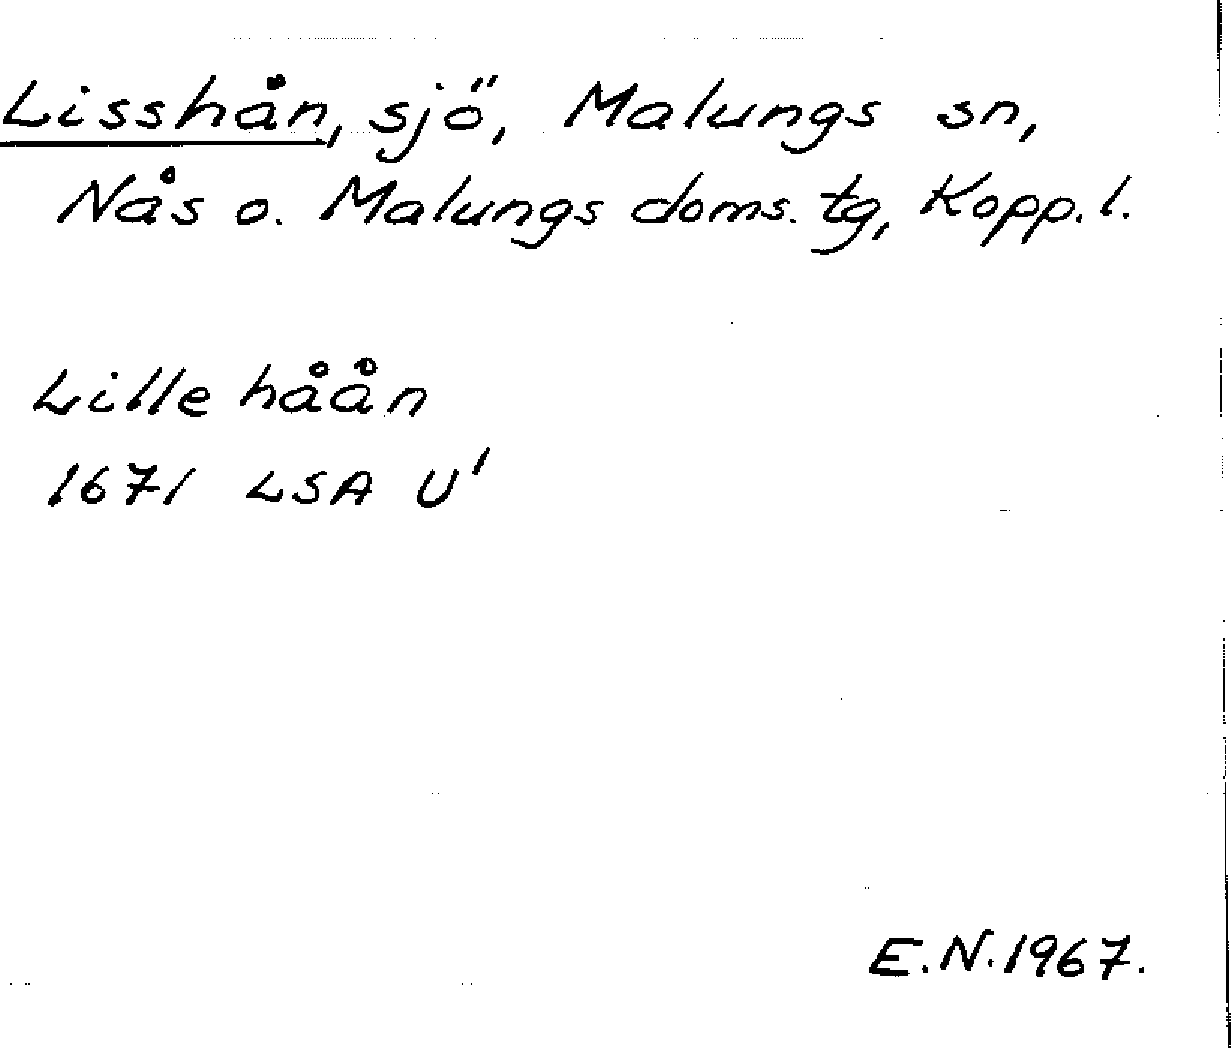 Lisshån, sjö, Malungs sn,
Nås o. Malungs doms. tg, Kopp. l.
Lille håån
1671 LSA U'
E.N. 1967.